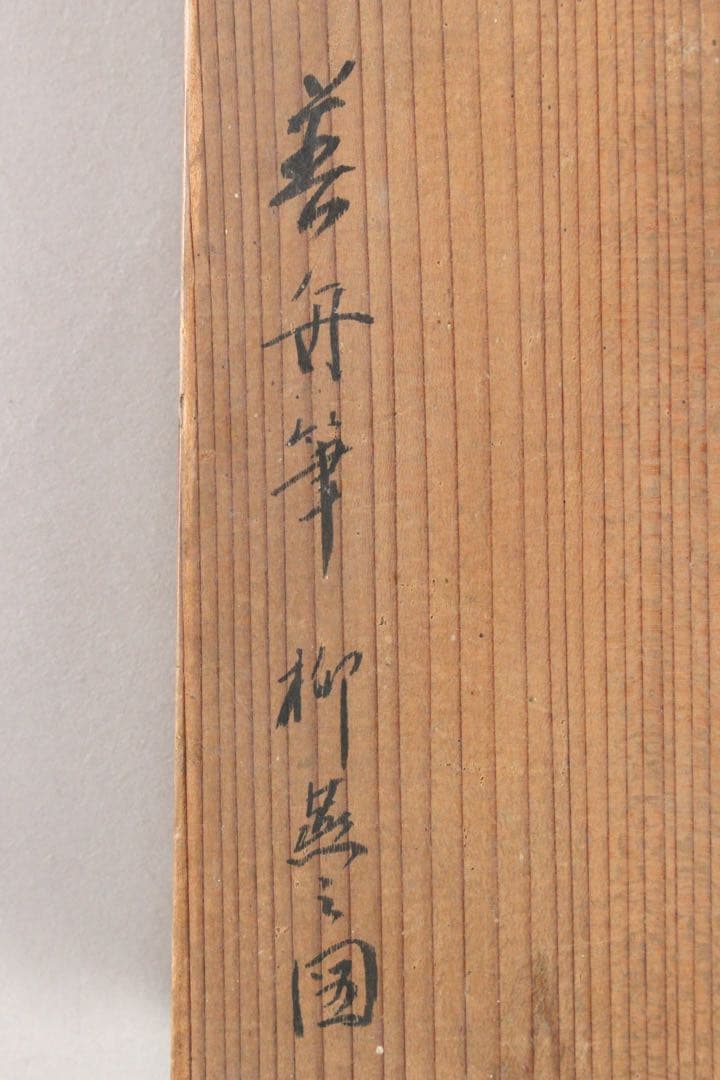 善舟筆 柳燕之図